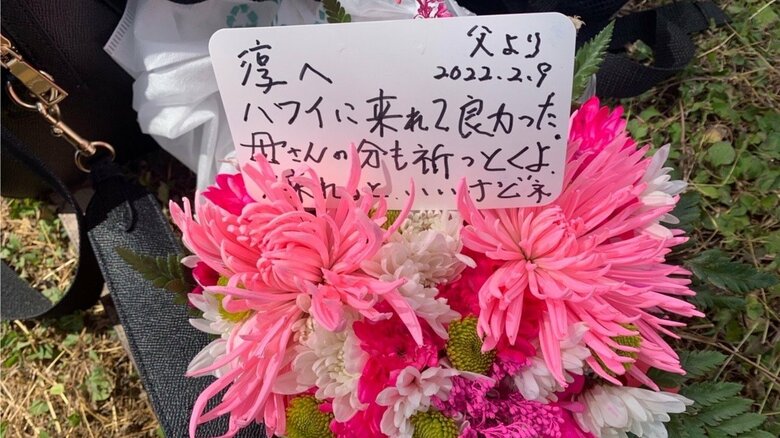 淳へ
父より
2022.2.9
ハワイに来れて良かった.
母さんの分も祈っとくよ.
来れると...いいけどネ